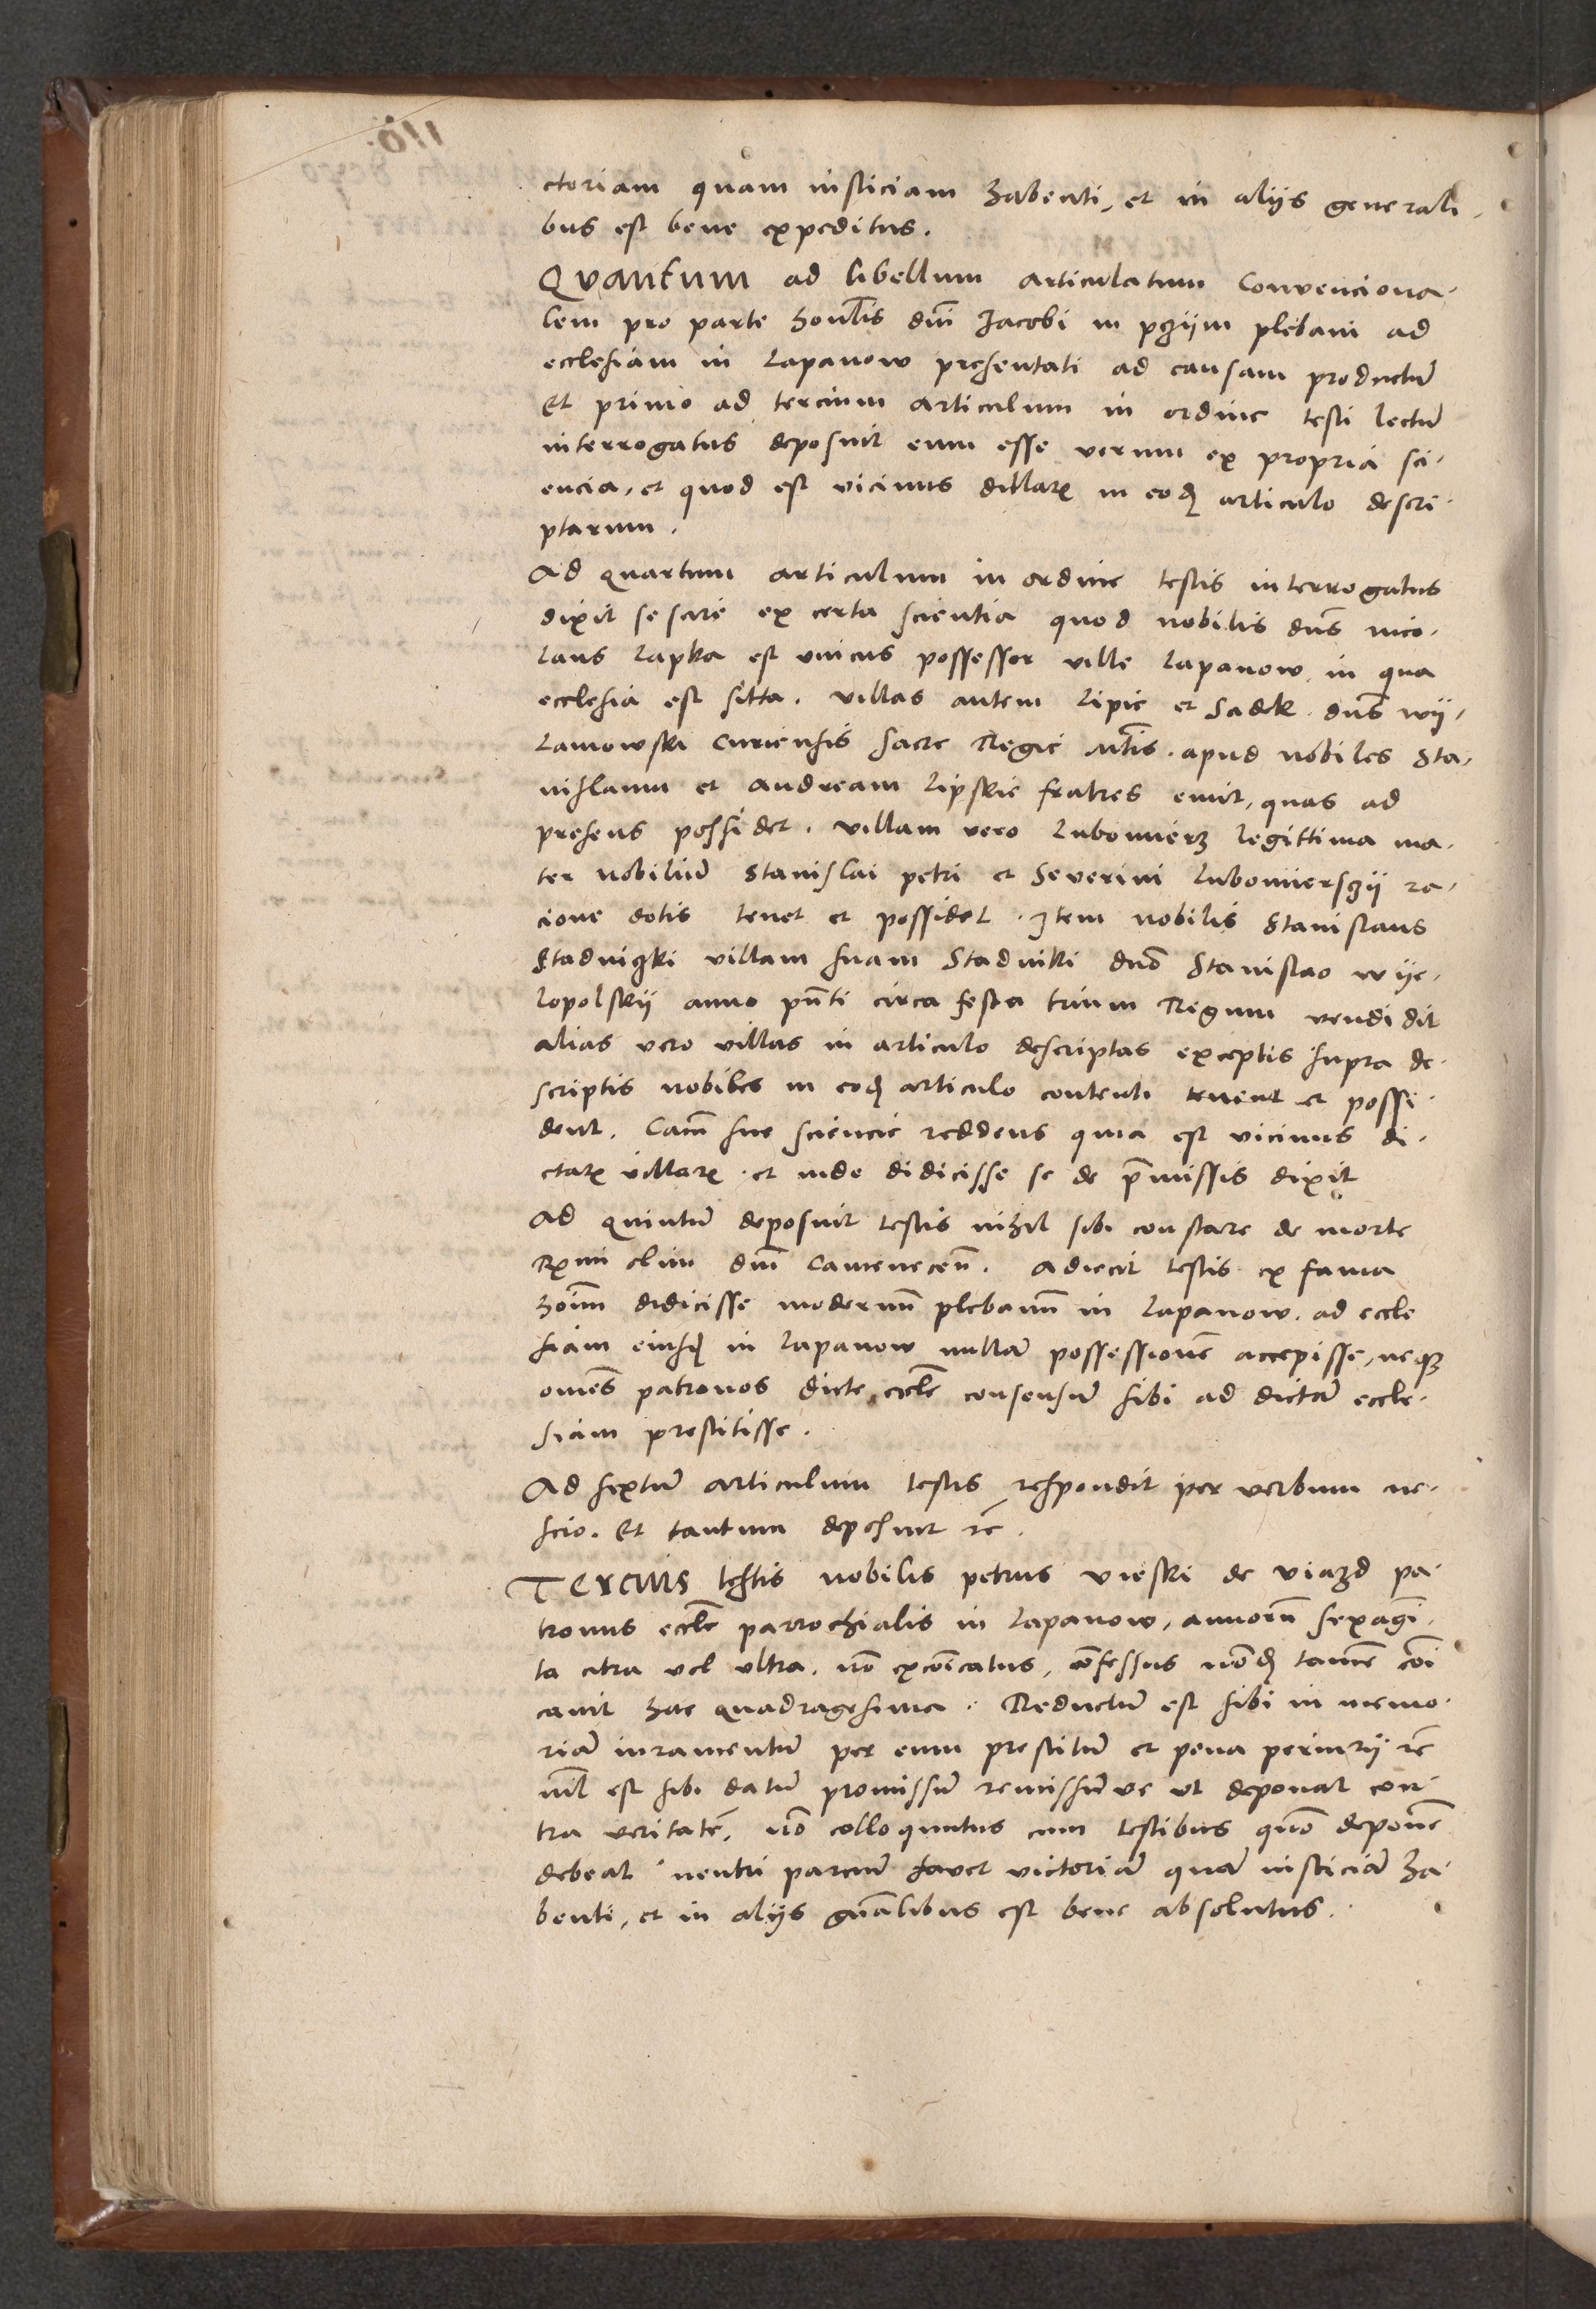 ctoriam quam iusticiam habenti, et in alijs generali-
bus est bene expeditus.
QVANTUM ad libellum articulatum Convenciona-
lem pro parte honlis dnī Jacobi in pczijm plebani ad
ecclesiam in Lapanow presentati ad causam productū
Et primo ad tercium articulum in ordine testi lectū
interrogatus deposuit eum esse verum ex propria sci-
encia, et quod est vicinus villarꝝ in eodꝫ articulo descri-
ptarum.
Ad quartum articulum in ordine testis interrogatus
dixit se scire ex certa scientia quod nobilis dns nico-
laus Lapka est unicus possessor ville Lapanow in qua
ecclesia est sitta. villas autem Lipie et Sadek dns wij-
lamowski Curiensis sacre Regie Mtis. apud nobiles Sta-
nislaum et Andream Lipskie fratres emit, quas ad
presens possidet. villam vero Lubomierz legittima ma-
ter nobiliū Stanislai petri et Severini Lubomierszij ra-
cione dotis tenet et possidet. Item nobilis Stanislaus
Stadniczki villam suam Stadniki dno Stanislao wije-
lopolskij anno pn̄ti circa festa trium Regum vendidit
alias vero villas in articulo descriptas exceptis supra de-
scriptis nobiles in eodꝫ articulo contenti tenent et possi-
dent. Cām sue sciencie reddens quia est vicinus di-
ctarꝝ villarꝝ. et inde didicisse se de p̄missis dixit
Ad quintū deposuit testis nihil sibi constare de morte
Rx̄mi olim dnī Camenecen̄. Adiecit testis ex fama
hoīm didicisse modernū plebanū in Lapanow. ad eccle
siam eiusdꝫ in Lapanow nullā possessionē accepisse, neqꝫ
omēs patronos dicte eccl̄e consensū sibi ad dictā eccle-
siam prestitisse.
Ad sextū articulum testis respondit per verbum ne-
scio. Et tantum deposuit rc̄.
Tercius testis nobilis petrus vieski de viazd pa-
tronus eccl̄e parrochialis in Lapanow, annorū sexagī-
ta citra vel ultra. nō excōicatus, cōfessus nōdꝫ tamē cōi
cavit hac quadragesima. Reductū est sibi in memo-
riā iuramentū per eum prestitū et pena periurij rc̄
nīl est sibi datū promissū remissūve ut deponat con-
tra veritatē, nō colloquutus cum testibus quō deponē
debeat neutri parciū favet victoriā quā iusticiā ha-
benti, et in alijs gn̄alibus est bene absolutus.